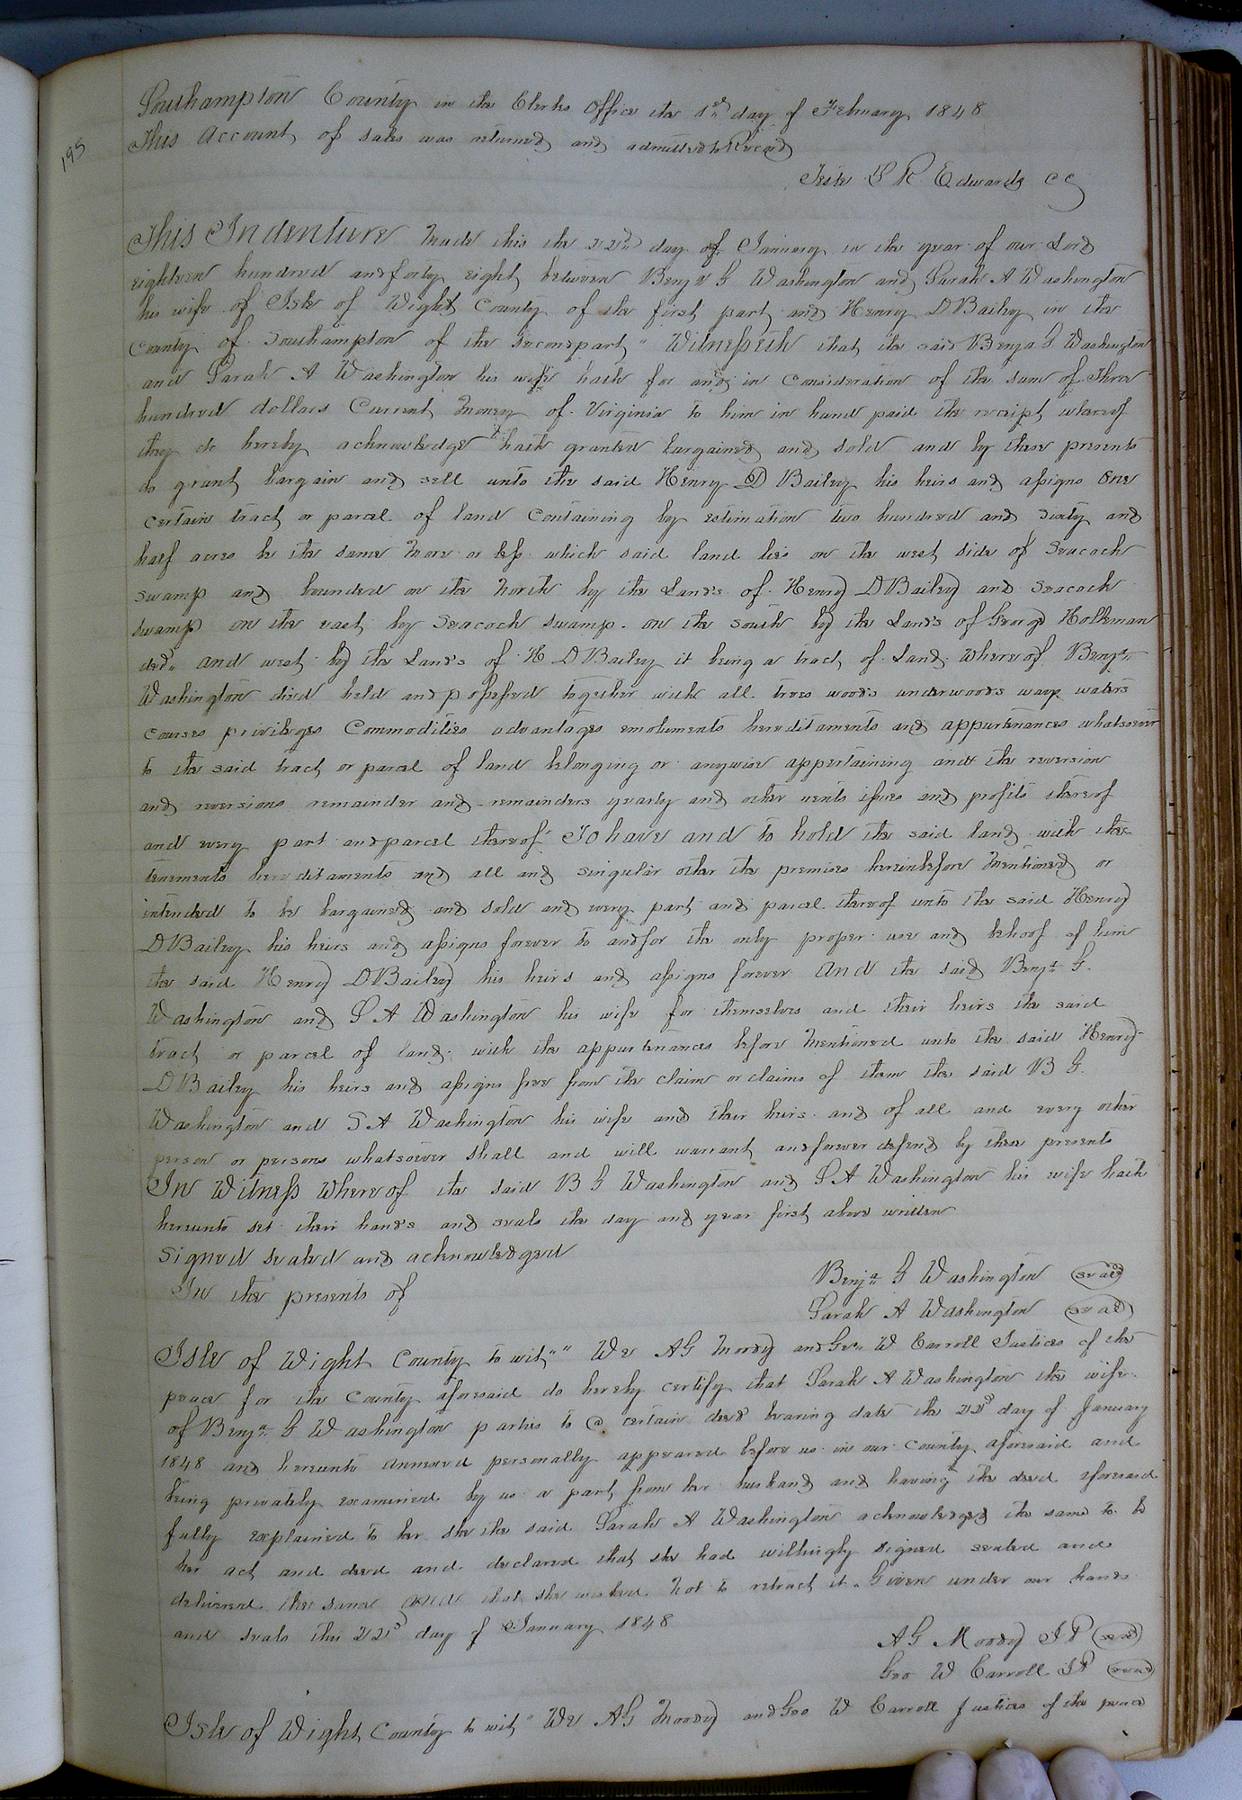 Southampton County in the Clerks Office the 1st day of February 1848
This Account of sales was returned and admitted to Record
Teste L R Edwards CC
195
This Indenture Made this the 22nd day of January in the year of our Lord
eighteen hundred and forty eight between Benja G Washington and Sarah A Washington
his wife of Isle of Wight County of the first part and Henry D Bailey in the
County of Southampton of the second part " Witnesseth that the said Benja G Washington
and Sarah A Washington his wife hath for and in Consideration of the sum of Three
hundred dollars Current Money of Virginia to him in hand paid the receipt whereof
they do hereby acknowledge hath granted bargained and sold and by these presents
do grant bargain and sell unto the said Henry D Bailey his heirs and assigns One
certain tract or parcel of land Containing by estimation two hundred and sixty and
half acres be the same More or less which said land lies on the west side of Seacock
swamp and bounded on the North by the Lands of Henry D Bailey and Seacock
swamp on the east by Seacock swamp. on the south by the Lands of George Holleman
decd. and west by the Lands of H D Bailey it being a tract of Land Whereof Benja
Washington died held and possessed together with all trees woods underwoods ways waters
courses privileges Commodities advantages emoluments hereditaments and appurtenances whatsoever
to the said tract or parcel of land belonging or anywise appertaining and the reversion
and reversions remainder and remainders yearly and other rents issues and profits thereof
and every part and parcel thereof" To have and to hold the said land with the
tenements hereditaments and all and singular other the premises hereinbefore Mentioned or
intended to be bargained and sold and every part and parcel thereof unto the said Henry
D Bailey his heirs and assigns forever to and for the only proper use and behoof of him
the said Henry D Bailey his heirs and assigns forever And the said Benja G.
Washington and S A Washington his wife for themselves and their heirs the said
tract or parcel of land with the appurtenances before Mentioned unto the said Henry
D Bailey his heirs and assigns free from the claim or claims of them the said B G.
Washington and S A Washington his wife and their heirs and of all and every other
person or persons whatsoever shall and will warrant and forever defend by these presents
In Witness Whereof the said B G Washington and S A Washington his wife hath
hereunto set their hands and seals the day and year first above written
Signed sealed and acknowledged
In the presents of
Benja G Washington seal
Sarah A Washington seal
Isle of Wight County to wit "" We A G Moody and Geo W Carroll Justices of the
peace for the County aforesaid do hereby certify that Sarah A Washington the wife
of Benja G Washington parties to a certain deed bearing date the 22d day of January
1848 and hereunto annexed personally appeared before us in our County aforesaid and
being privately examined by us a part from her husband and having the deed aforesaid
fully explained to her she the said Sarah A Washington acknowledged the same to be
her act and deed and declared that she had willingly signed sealed and
delivered the same and that she wished Not to retract it. Given under our hands
and seals this 22d day of January 1848
A G Moody J P seal
Geo W Carroll J P seal
Isle of Wight County to wit " We A G Moody and Geo W Carroll Justices of the peace